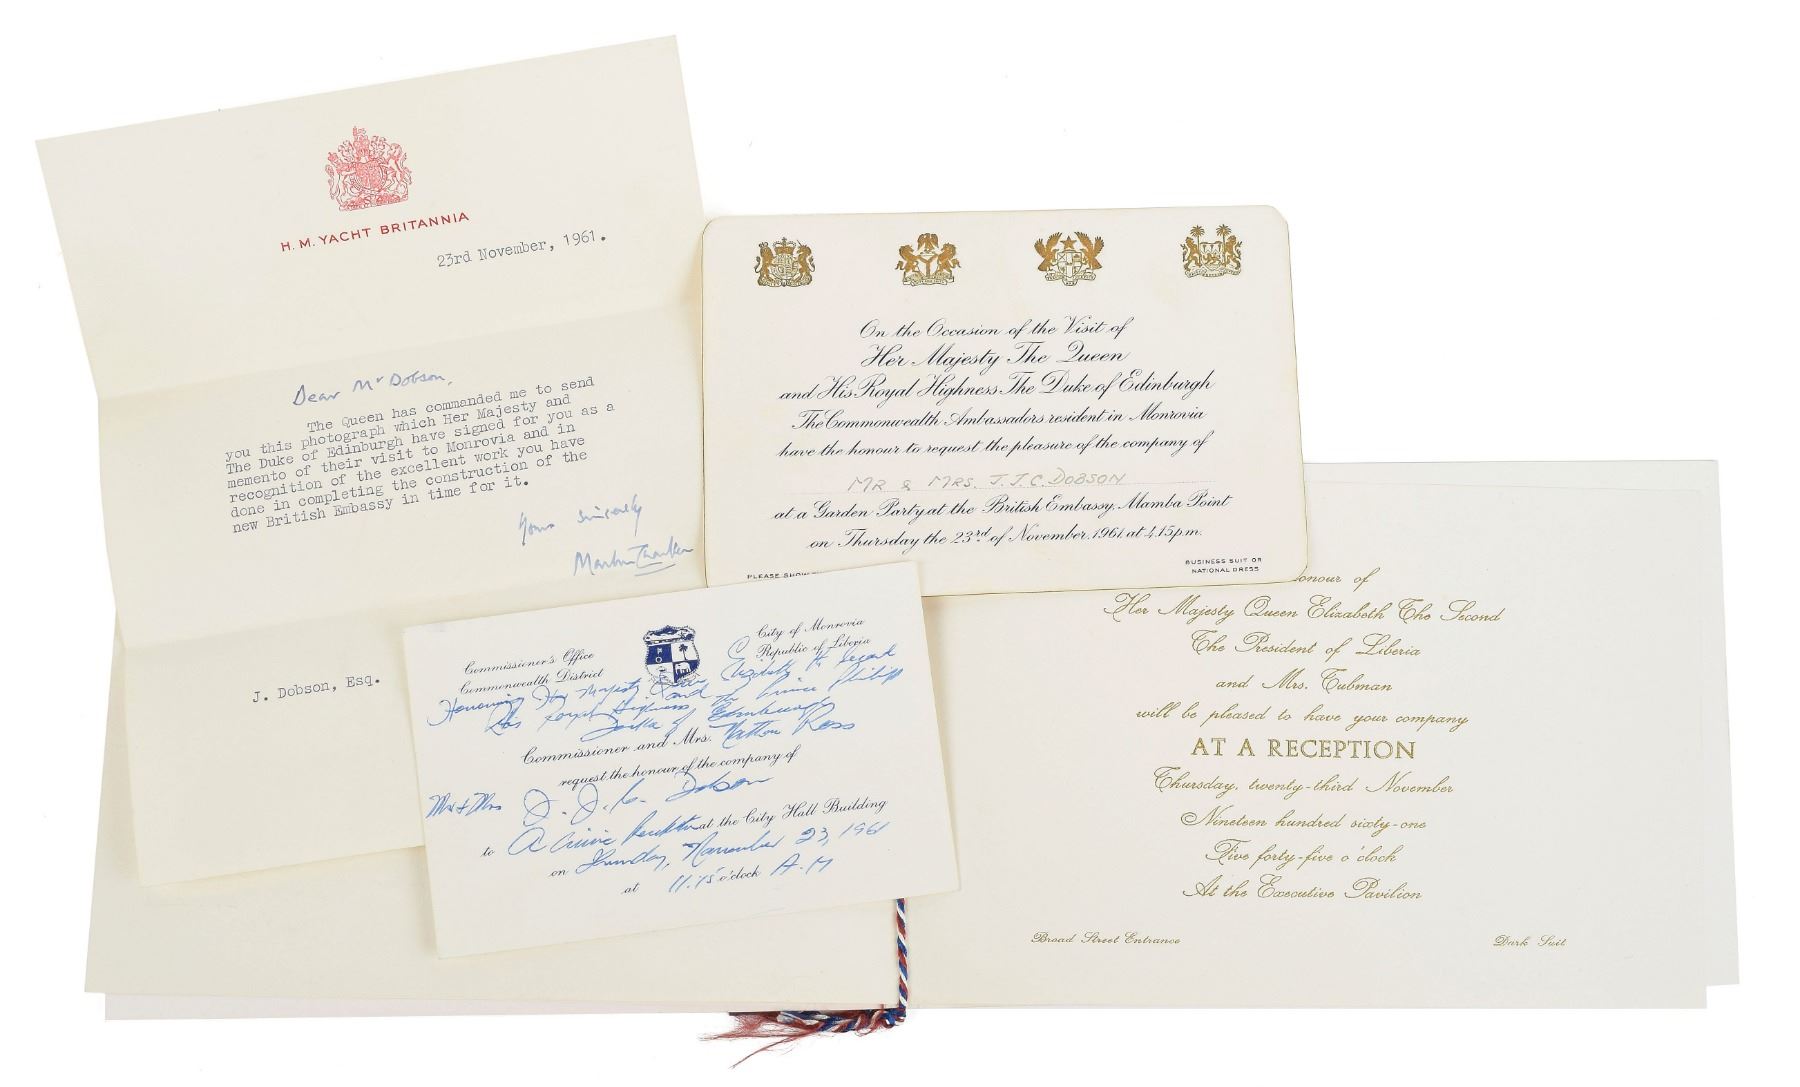 H. M. YACHT BRITANNIA
23rd November, 1961.
Dear Mr Dobson,
The Queen has commanded me to send
you this photograph which Her Majesty and
The Duke of Edinburgh have signed for you as a
memento of their visit to Monrovia and in
recognition of the excellent work you have
done in completing the construction of the
new British Embassy in time for it.
Yours sincerely
Martin
J. Dobson, Esq.
On the Occasion of the Visit of
Her Majesty The Queen
and His Royal Highness The Duke of Edinburgh
The Commonwealth Ambassadors resident in Monrovia
have the honour to request the pleasure of the company of
MR & MRS. J. J. C. DOBSON
at a Garden Party at the British Embassy, Mamba Point
on Thursday the 23rd of November, 1961, at 4.15 p.m.
PLEASE SHOW
BUSINESS SUIT OR
NATIONAL DRESS
Commissioner's Office
Commonwealth District
City of Monrovia
Republic of Liberia
Honouring Her Majesty Elizabeth the Second
and
His Royal Highness, The Prince Philip
Duke of Edinburgh
Commissioner and Mrs. Natton Ross
request the honour of the company of
Mr & Mrs J. J. C. Dobson
to A Civic at the City Hall Building
on Thursday, November 23, 1961
at 11.15 o'clock A.M
onour of
Her Majesty Queen Elizabeth The Second
The President of Liberia
and Mrs. Tubman
will be pleased to have your company
AT A RECEPTION
Thursday, twenty-third November
Nineteen hundred sixty-one
Five forty-five o'clock
At the Executive Pavilion
Broad Street Entrance
Dark Suit